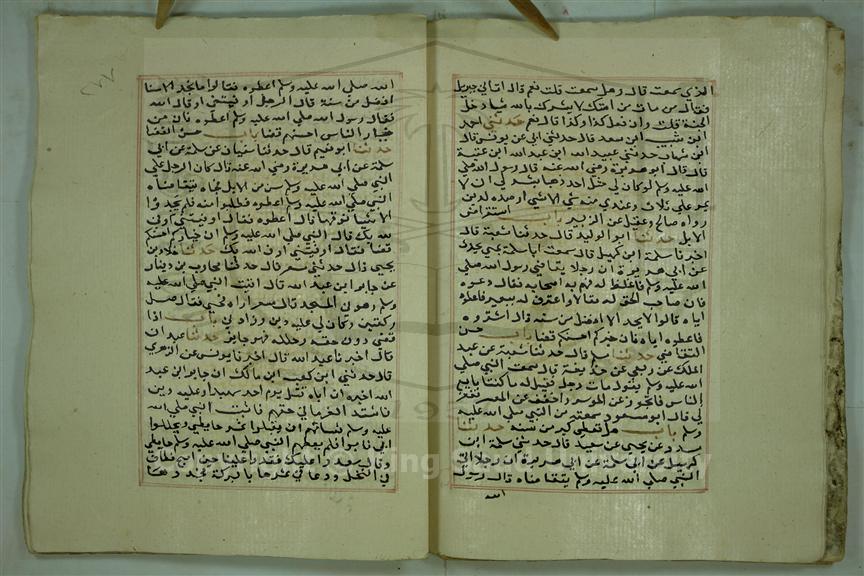 الذي سمعت قال وهل سمعت قلت نعم قال اتاني جبريل
فقال من مات من امتك لا يشرك بالله شيا دخل
الجنة قلت وان فعل كذا وكذا قال نعم حدثني احمد
ابن شبيب ابن سعد قال حدثني ابي عن يونس قال
ابن شهاب حدثني عبيد الله ابن عبد الله ابن عتبة
قال قال ابو هريرة رضي الله عنه قال رسول الله صلى
الله عليه وسلم لو كان لي مثل احد ذهبا ما يسرني ان لا
يمر علي ثلاث وعندي منه شي الا شي ارصده لدين
رواه صالح وعقيل عن الزهري باب استقراض
الابل حدثنا ابو الوليد قال حدثنا شعبة قال
اخبرنا سلمة ابن كهيل قال سمعت ابا سلمة بمنى يحدث
عن ابي هريرة ان رجلا تقاضى رسول الله صلى
الله عليه وسلم فاغلظ له فهم به اصحابه فقال دعوه
فان صاحب الحق له مقالا واشتروا له بعيرا فاعطوه
اياه قالوا لا نجد الا افضل من سنه قال اشتروه
فاعطوه اياه فان خيركم احسنكم قضا باب حسن
التقاضي حدثنا مسلم قال حدثنا شعبة عن عبد
الملك عن ربعي عن حذيفة قال سمعت النبي صلى
الله عليه وسلم يقول مات رجل فقيل له ما كنت ابايع
الناس فاتجوز عن الموسر واخفف عن المعسر فغفر
له قال ابو مسعود سمعته من النبي صلى الله عليه
وسلم باب هل يعطى اكبر من سنه حدثنا
مسدد عن يحيى عن سفيان قال حدثني سلمة ابن
كهيل عن ابي سلمة عن ابي هريرة ان رجلا اتى
النبي صلى الله عليه وسلم يتقاضاه قال رسول
الله
الله صلى الله عليه وسلم اعطوه فقالوا ما نجد الا سنا
افضل من سنه قال الرجل اوفيتني اوفاك الله
فقال رسول الله صلى الله عليه وسلم اعطوه فان من
خيار الناس احسنهم قضا باب حسن القضا
حدثنا ابو نعيم قال حدثنا سفيان عن سلمة عن ابي
سلمة عن ابي هريرة رضي الله عنه قال كان لرجل على
النبي صلى الله عليه وسلم سن من الابل فجاه يتقاضاه
النبي صلى الله عليه وسلم اعطوه فطلبوا سنه فلم يجدوا
الا سنا فوقها قال اعطوه فقال اوفيتني اوفى
الله بك قال النبي صلى الله عليه وسلم ان خياركم احسنكم
قضا حدثنا خلاد بن
يحيى قال حدثني مسعر قال حدثنا محارب بن دينار
عن جابر ابن عبد الله قال اتيت النبي صلى الله عليه
وسلم وهو في المسجد قال مسعر اراه ضحى فقال صل
ركعتين وكان لي عليه دين وزادني باب اذا
قضى دون حقه وحلله فهو جايز حدثنا عبدان
قال اخبرنا عبد الله قال اخبرنا يونس عن الزهري
قال حدثني ابن كعب ابن مالك ان جابر ابن عبد
الله اخبره ان اباه قتل يوم احد شهيدا وعليه دين
فاشتد الغرما في حقهم فاتيت النبي صلى الله
عليه وسلم فسالهم ان يقبلوا تمر حايطي ويحللوا
ابي فابوا فلم يعطهم النبي صلى الله عليه وسلم حايطي
وقال سنغدو عليك فغدا علينا حين اصبح فطاف
في النخل ودعا في تمرها بالبركة فجددتها